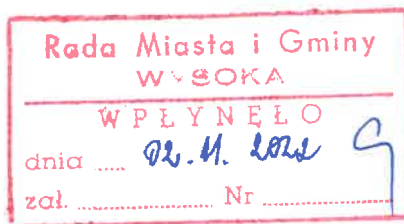 Rada Miasta i Gminy
WYSOKA
WPŁYNĘŁO
dnia ..... 02. 11. 2022
zał. .................. Nr ..................